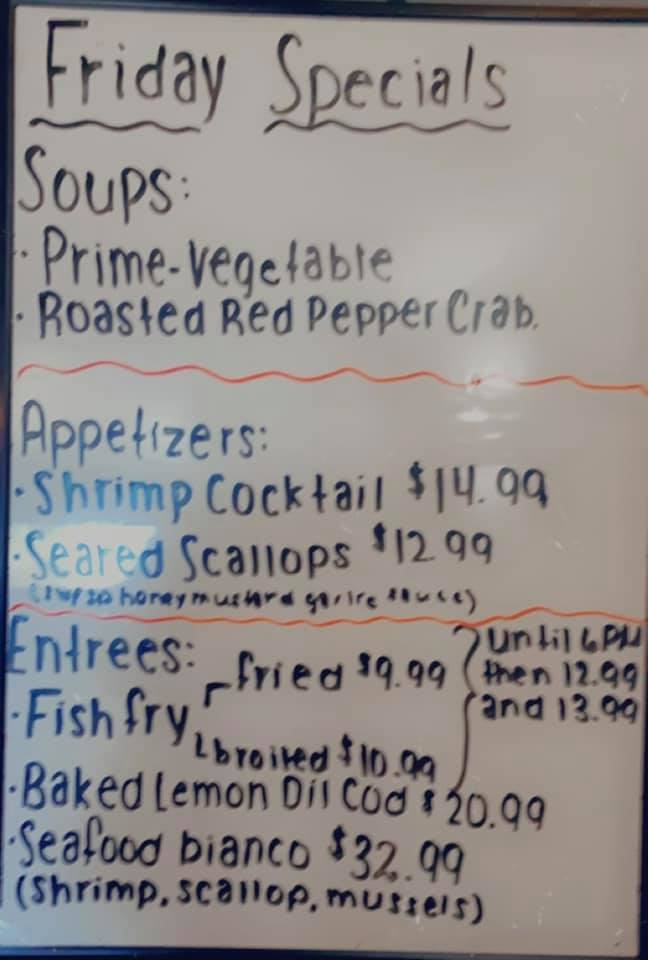 Friday Specials
Soups:
· Prime-Vegetable
· Roasted Red Pepper Crab.
Appetizers:
· Shrimp Cocktail $14.99
· Seared Scallops $12 99
honey mustard sauce)
Entrees:
· Fish fry
fried $9.99
broiled $10.99
until 6 PM
then 12.99
and 13.99
· Baked Lemon Dil Cod $20.99
· Seafood bianco $32.99
(shrimp, scallop, mussels)